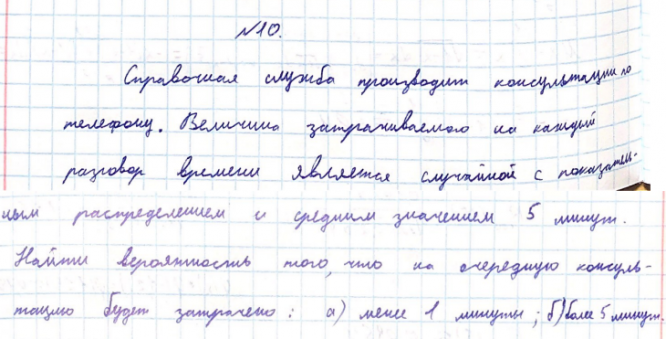 №10.
Справочная служба производит консультации по
телефону. Величина затрачиваемого на каждый
разговор времени является случайной с показатель-
ным распределением и средним значением 5 минут.
Найти вероятность того, что на очередную консуль-
тацию будет затрачено: а) менее 1 минуты; б) более 5 минут.